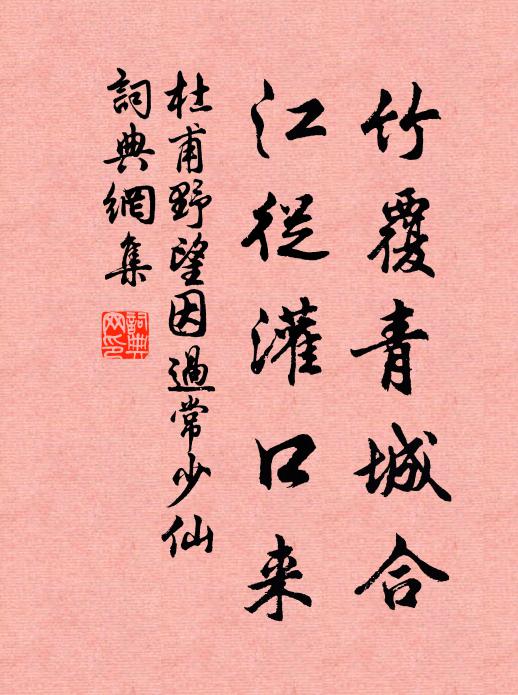 竹覆青城合
江從灌口来
杜甫野望因過常少仙
詞典網集
詞典網印